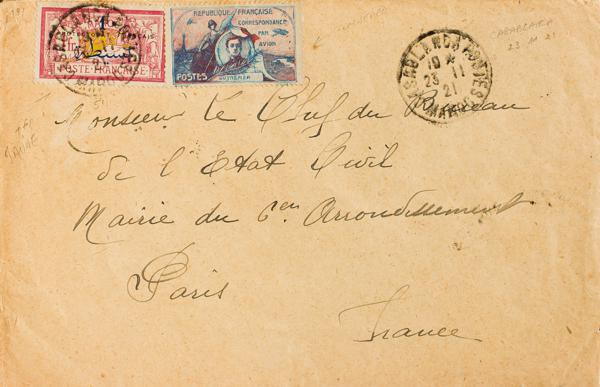 RÉPUBLIQUE FRANÇAISE
CORRESPONDANCE
PAR
AVION
POSTES
GUYNEMER
POSTE FRANÇAISE
CASABLANCA POSTES
19 * 
23 11
21
MAROC
CASABLANCA
23 11 21
Monsieur le Chef du Bureau
de l'Etat Civil
Mairie du 6en Arrondissement
Paris
France